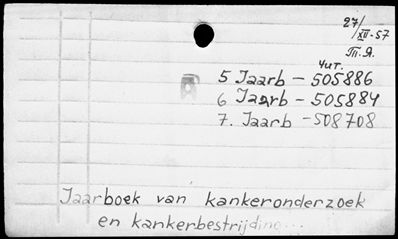 27/XII-57
Т.Я.
Чит.
5 Jaarb – 505886
6 Jaarb – 505884
7. Jaarb – 508708
Jaarboek van kankeronderzoek
en kankerbestrijding...